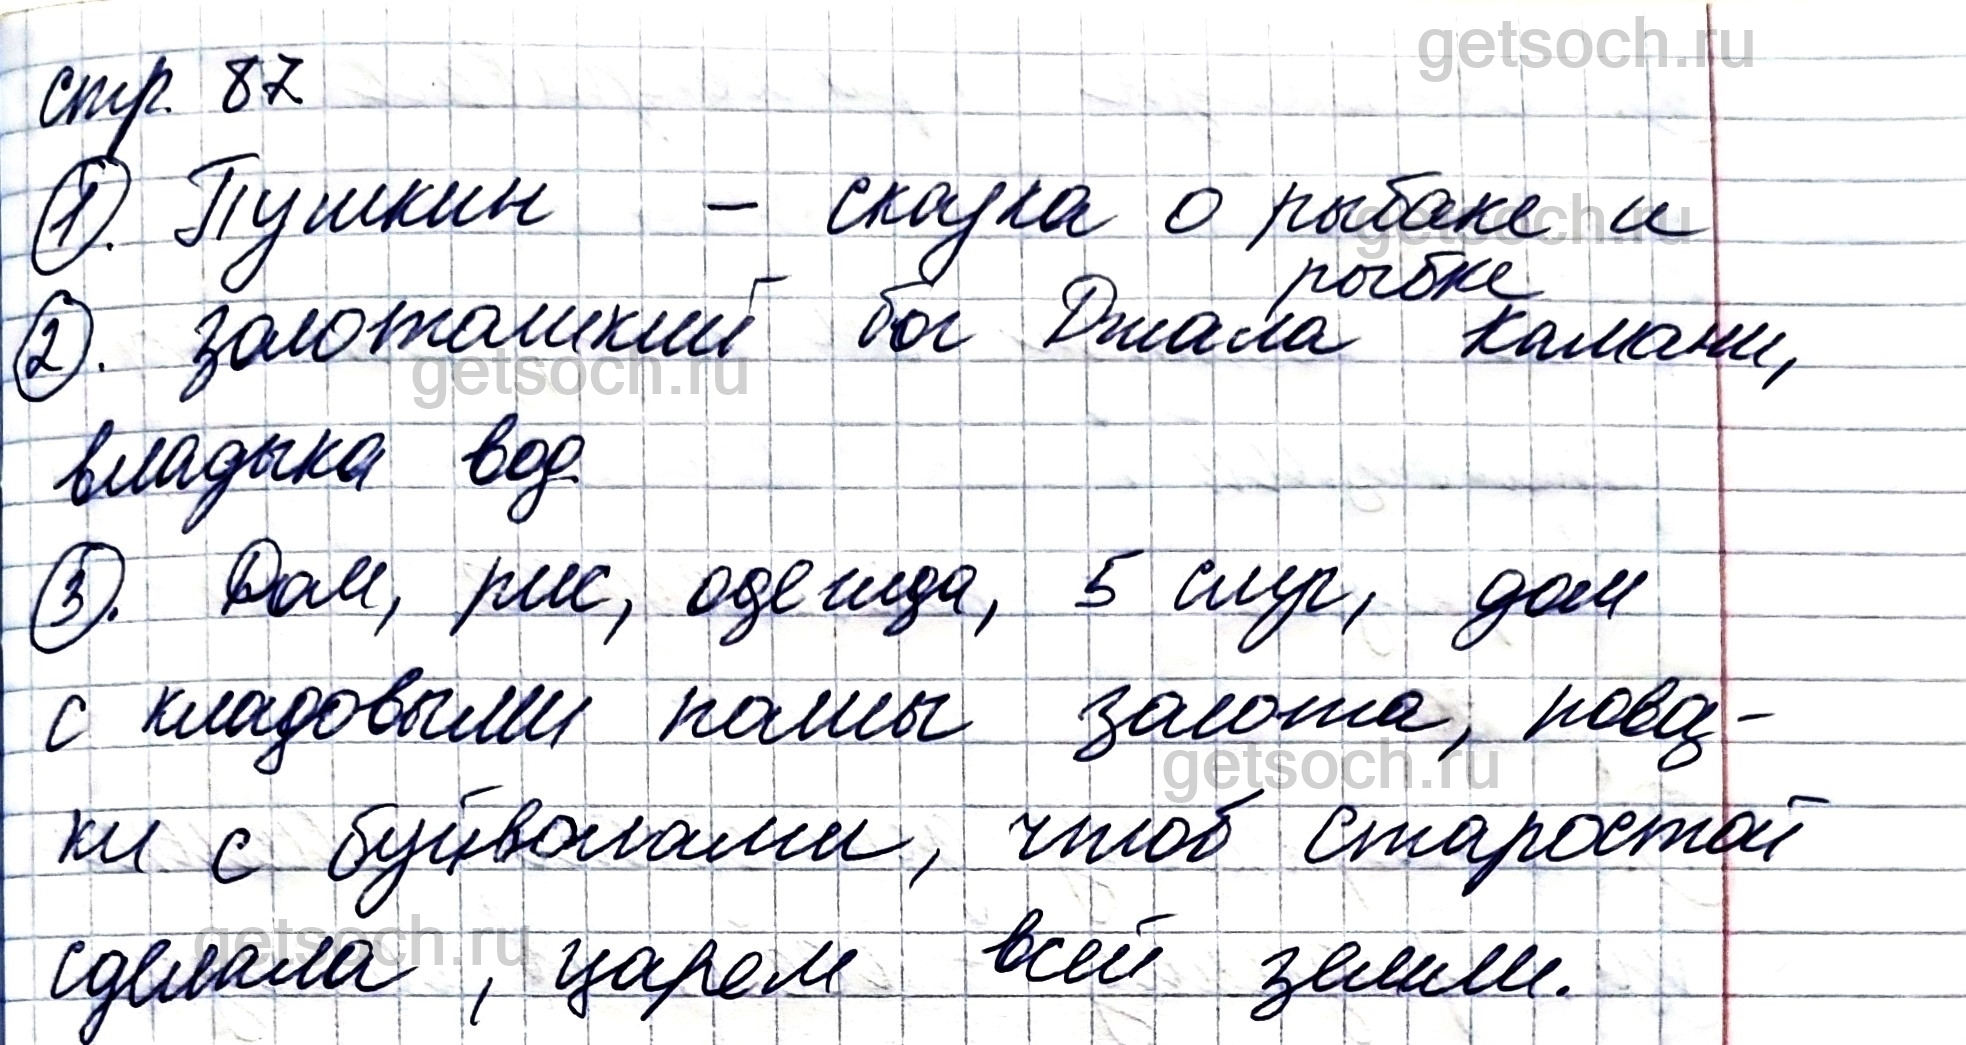 getsoch.ru
стр. 87
1. Пушкин - сказка о рыбаке и
getsoch.ru
рыбке
2. золотошкий бог Джала Камани,
getsoch.ru
владыка вод
3. Дом, рис, одежда, 5 слуг, дом
с кладовыми полны золота, повоз-
getsoch.ru
ки с буйволами, чтоб старостой
getsoch.ru
сделала, царем всей земли.